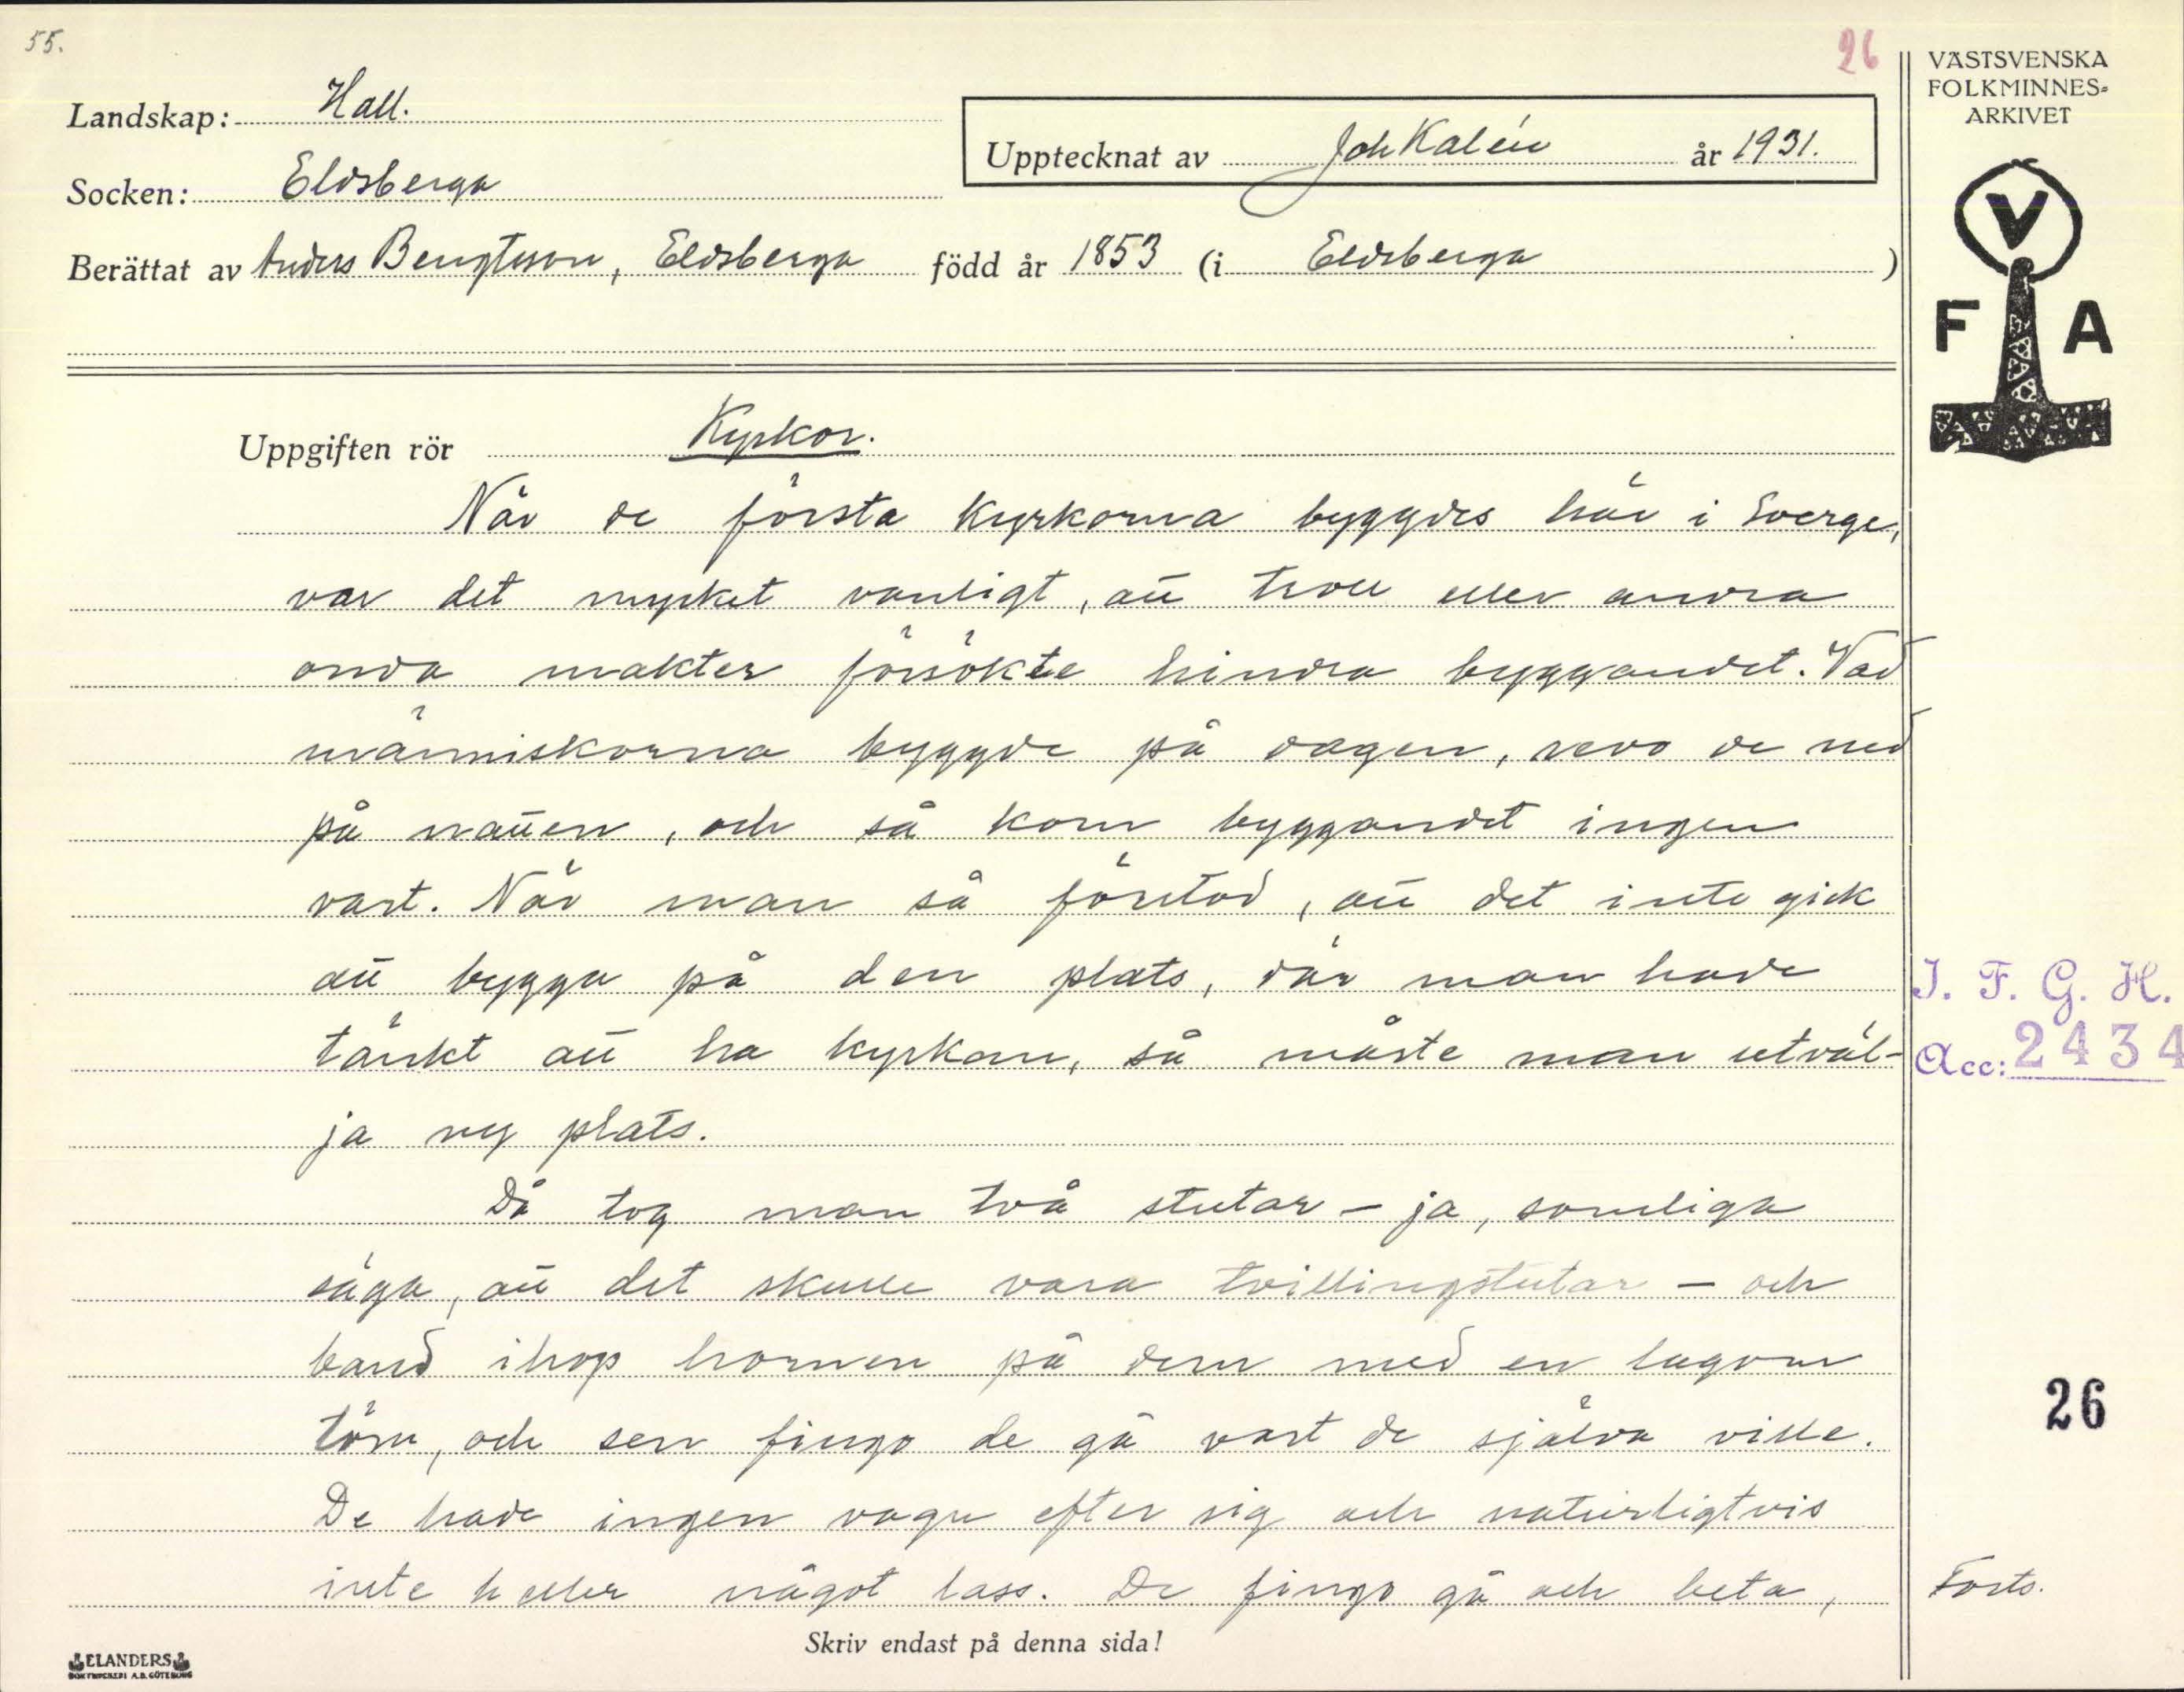 55.
26
VÄSTSVENSKA
FOLKMINNES=
ARKIVET
Landskap: Hall.
Upptecknat av Joh Kalén år 1931.
Socken: Eldsberga
Berättat av Anders Bengtsson, Eldsberga född år 1853 (i Eldsberga )
V
F A
Uppgiften rör Kyrkor.
När de första kyrkorna byggdes här i Sverge,
var det mycket vanligt, att troll eller andra
onda makter försökte hindra byggandet. Vad
människorna byggde på dagen, revo de ned
på natten, och så kom byggandet ingen
vart. När man så förstod, att det inte gick
att bygga på den plats, där man hade
tänkt att ha kyrkan, så måste man utväl-
ja ny plats.
Då tog man två stutar - ja, somliga
säga, att det skulle vara tvillingstutar - och
band ihop hornen på dem med en lagom
töm, och sen fingo de gå vart de själva ville.
De hade ingen vagn efter sig och naturligtvis
inte heller något lass. De fingo gå och beta,
I. F. G. H.
Acc: 2434
26
Forts.
Skriv endast på denna sida!
ELANDERS
BOKTRYCKERI A.B. GÖTEBORG